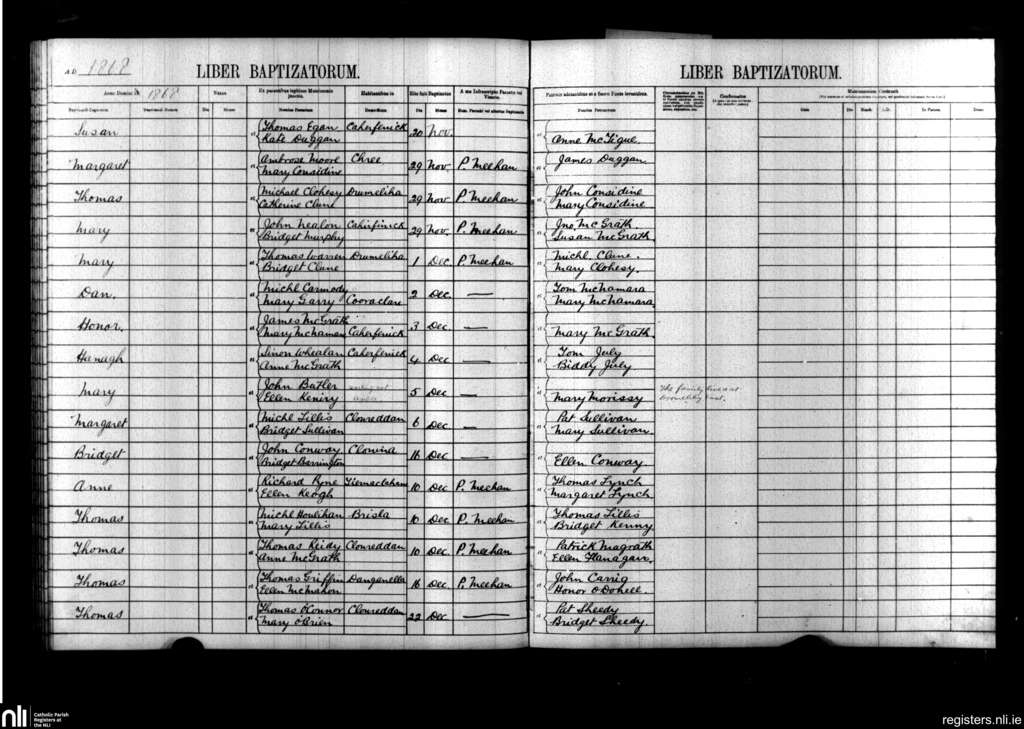 A.D. 1868
LIBER BAPTIZATORUM.
LIBER BAPTIZATORUM.
Anno Domini 18 1868
Ex parentibus legitimo Matrimonio junctis.
Habitantibus in
Confirmatio
Dies
Mense
Nomina Parentum
Domicilium
Die
Mense
Nomina Patrinorum
Die
Susan
Thomas Egan Caherfenick 20 Nov.
Kate Duggan
Anne McTigue
Margaret
Ambrose Moore Chree 29 Nov P. Meehan
Mary Considine
James Duggan
Thomas
Michael Clohesy Drumeliha 29 Nov P. Meehan
Catherine Clune
John Considine
Mary Considine
Mary
John Nealon Cahirfinick 29 Nov. P. Meehan
Bridget Murphy
Jno. McGrath
Susan McGrath
Mary
Thomas Warren Drumeliha 1 Dec. P. Meehan
Bridget Clune
Michl. Clune.
Mary Clohesy.
Dan.
Michl Carmody
Mary Garry Cooraclare 2 Dec. —
Tom McNamara
Mary McNamara
Honor.
James McGrath
Mary McNamara Caherfenick 3 Dec. —
Mary McGrath.
Hanagh
Sinon Whealan Caherfenick 4 Dec —
Anne McGrath
Tom July
Biddy July
Mary
John Butler
Ellen Keniry 5 Dec —
Mary Morissy
The family
Margaret
Michl Lillis Clonreddan 6 Dec —
Bridget Sullivan
Pat Sullivan
Mary Sullivan.
Bridget
John Conway Clowina 16 Dec. —
Bridget Barrington
Ellen Conway.
Anne
Richard Pyne 10 Dec P. Meehan
Ellen Keogh
Thomas Lynch
Margaret Lynch
Thomas
Michl Houlihan Brisla 10 Dec. P. Meehan
Mary Lillis
Thomas Lillis
Bridget Kenny
Thomas
Thomas Reidy Clonreddan 10 Dec. P. Meehan
Anne McGrath
Patrick Magrath
Ellen Flanagan.
Thomas
Thomas Griffin Danganella 16 Dec P. Meehan
Ellen McMahon
John Carrig
Honor O'Dohell.
Thomas
Thomas O'Connor Clonreddan 22 Dec —
Mary O'Brien
Pat Sheedy
Bridget Sheedy.
nli
Catholic Parish
Registers at
the NLI
registers.nli.ie